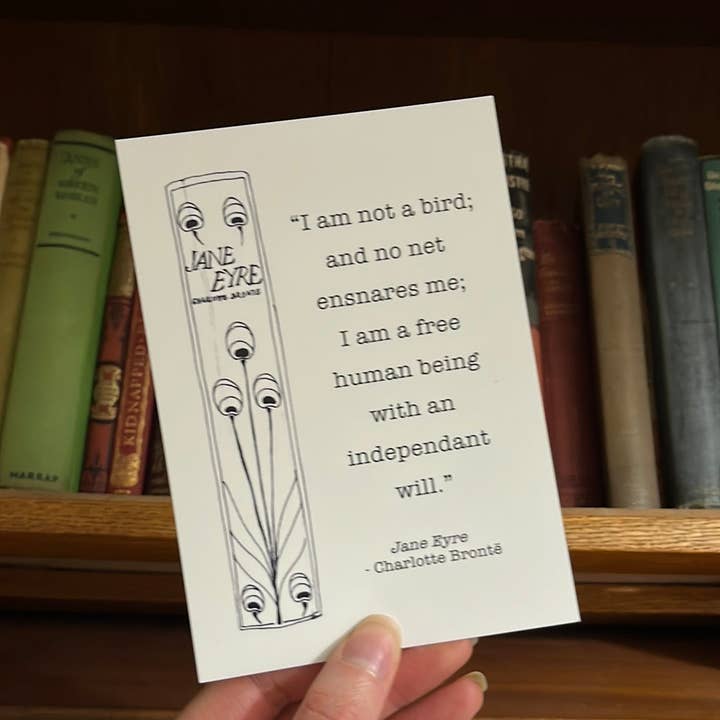 JANE
EYRE
CHARLOTTE BRONTË
“I am not a bird;
and no net
ensnares me;
I am a free
human being
with an
independant
will.”
Jane Eyre
- Charlotte Brontë
HARRAP
KIDNAPPED